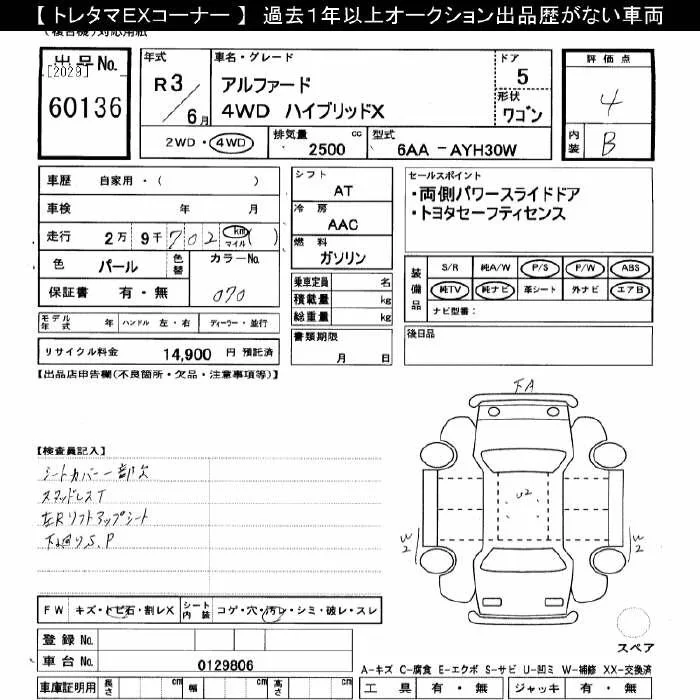 【 トレタマEXコーナー 】 過去1年以上オークション出品歴がない車両
(複合機)対応用紙
出品No.
[2029]
60136
年式
R 3 / 6月
車名・グレード
アルファード
4WD ハイブリッドX
ドア
5
形状
ワゴン
評価点
4
内装
B
2WD・4WD
排気量
2500 cc
型式
6AA -AYH30W
車歴 自家用・( )
車検 年 月
走行 2万 9千702 km マイル ( )
色 パール 色替 カラーNo.
070
保証書 有・無
モデル年式 年 ハンドル 左・右 ディーラー・並行
リサイクル料金 14,900 円 預託済
シフト
AT
冷房
AAC
燃料
ガソリン
乗車定員 名
積載量 kg
総重量 kg
書類期限
月 日
セールスポイント
・両側パワースライドドア
・トヨタセーフティセンス
装備品
S/R 純A/W P/S P/W ABS
純TV 純ナビ 革シート 外ナビ エアB
ナビ型番:
後日品
【出品店申告欄(不良箇所・欠品・注意事項等)】
【検査員記入】
シートカバー一部欠
スマッドレスT
左Rリフトアップシート
下廻りS.P
下A
U2
W2
W2
スペア
FW キズ・トビ石・割レX シート内装 コゲ・穴・汚レ・シミ・破レ・スレ
登録No.
車台No. 0129806
車庫証明用 長さ cm 幅 cm 高さ cm
A-キズ C-腐食 E-エクボ S-サビ U-凹ミ W-補修 XX-交換済
工具 有・無 ジャッキ 有・無